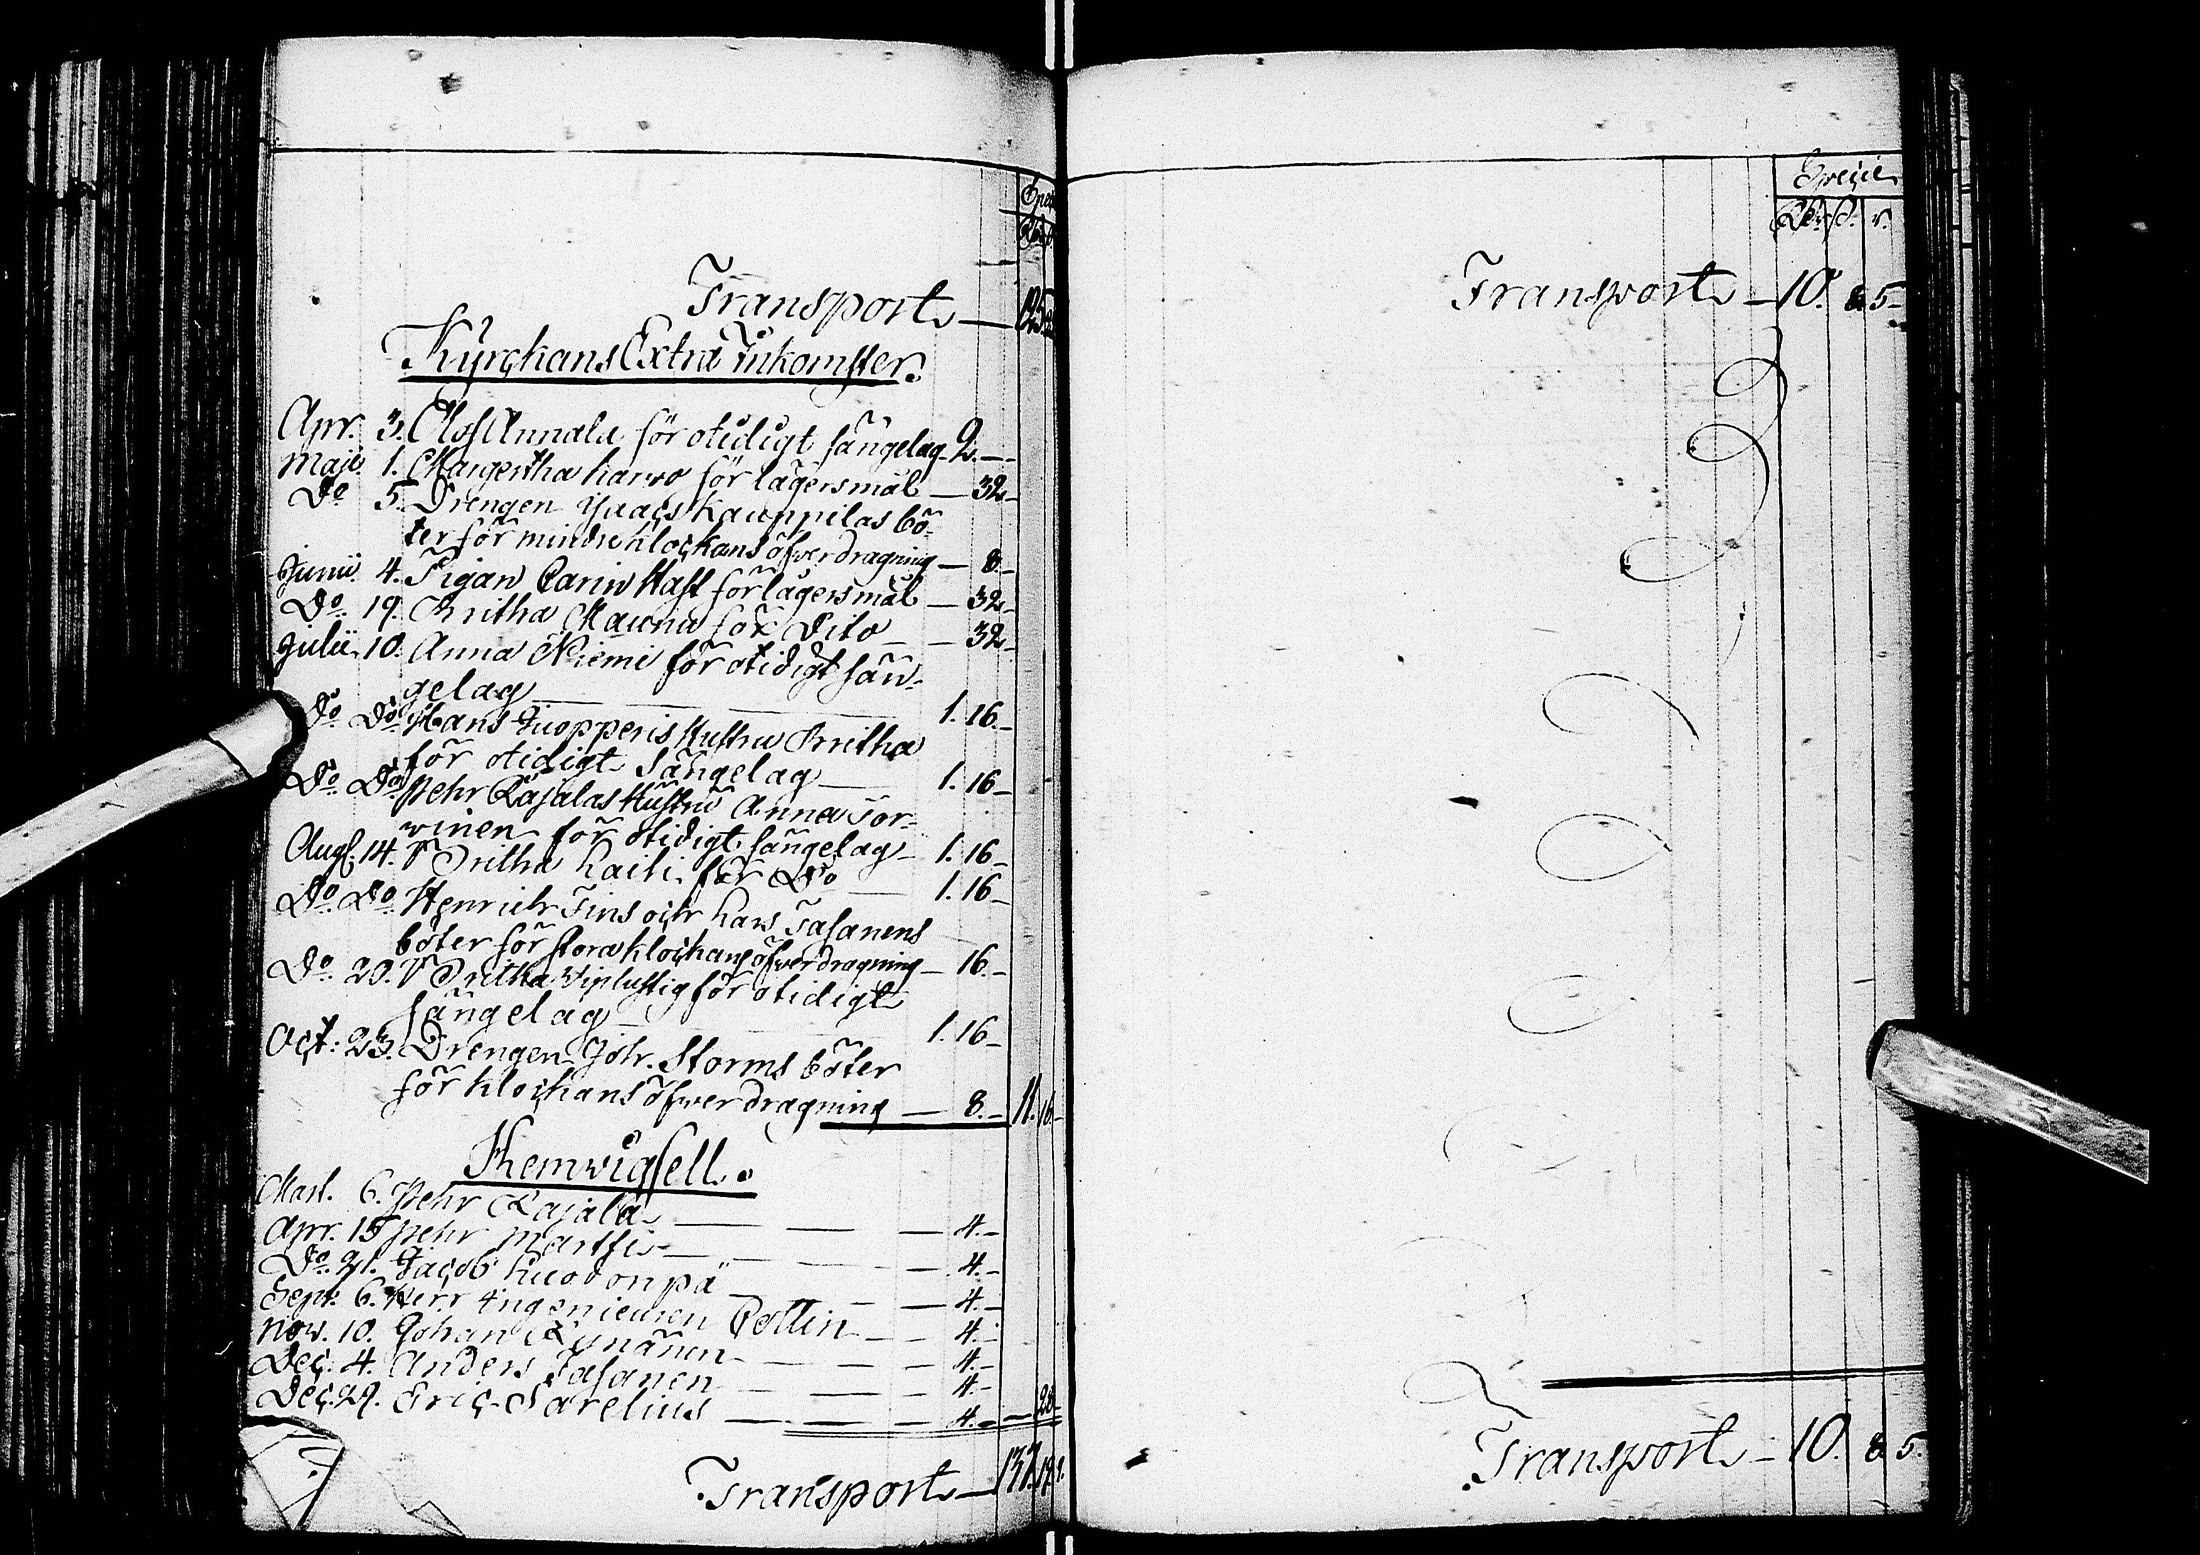 Transport — 125.
Kyrckans Extra Inkomster.
Apr. 3. Olof Annala för otidigt sängelag 2. —
Maji 1. Margertha Karvo för lägersmål — 32 —
Do 5. Drengen Isaacs Kauppilas bö-
ter för mindre klockans öfwerdragning — 8. —
Junii 4. Pigan Carin Hast för lägersmål — 32 —
Do. 19. Britha Mauna för Dito — 32 —
Julii 10. Anna Niemi för otidigt sän-
gelag — 1. 16. —
Do Do Hans Juopperis Hustru Britha
för otidigt sängelag — 1. 16 —
Do. Do. Pehr Rajalas Hustru Anna Tor-
winen för otidigt sängelag — 1. 16 —
Aug. 14. Britha Laiti för Do — 1. 16 —
Do. Do. Henrich Fins och Lars Tasanens
böter för stora klockans öfwerdragning — 16. —
Do. 20. Britha Wiplustig för otidigt
sängelag — 1. 16 —
Oct: 23. Drengen Joh. Storms böter
för klockans öfwerdragning — 8. — 11. 16. —
Hemwigsell.
Mart. 6. Pehr Rajala — 4. —
Apr. 15 Pehr Martfi — 4. —
Do. 21. Jacob Kuodonpä — 4. —
Sept. 6. Herr Ingenieuren Pollin — 4. —
Nov. 10. Johan Kynänen — 4. —
Dec. 4. Anders Tasanen — 4. —
Dec. 29. Eric Sarelius — 4. — — 28
Transport — 137.
Specie
Rdr. S. r.
Transport — 10. 8. 5. —
Transport — 10. 8. 5.